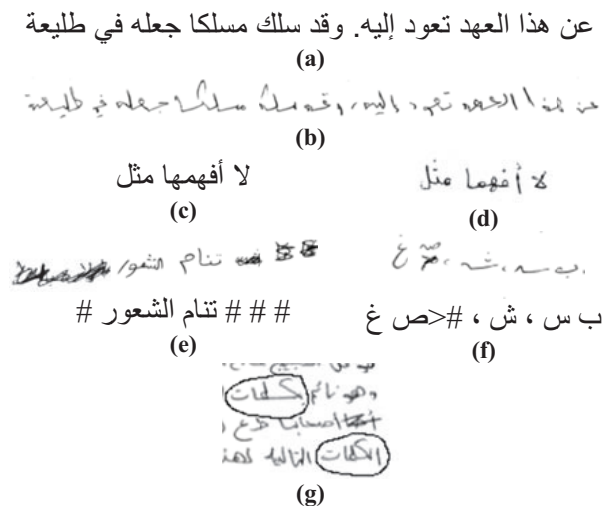 عن هذا العهد تعود إليه. وقد سلك مسلكا جعله في طليعة
(a)
عن هذا العهد تعود إليه، وقد سلك مسلكا جعله في طليعة
(b)
لا أفهمها مثل
(c)
لا أفهما مثل
(d)
تنام الشعور
# # # تنام الشعور #
(e)
ب س ، ش ، ص غ
ب س ، ش ، #<ص غ
(f)
وهو نائم بكلمات
أصحابا
الكلمات التالية لهذ
(g)